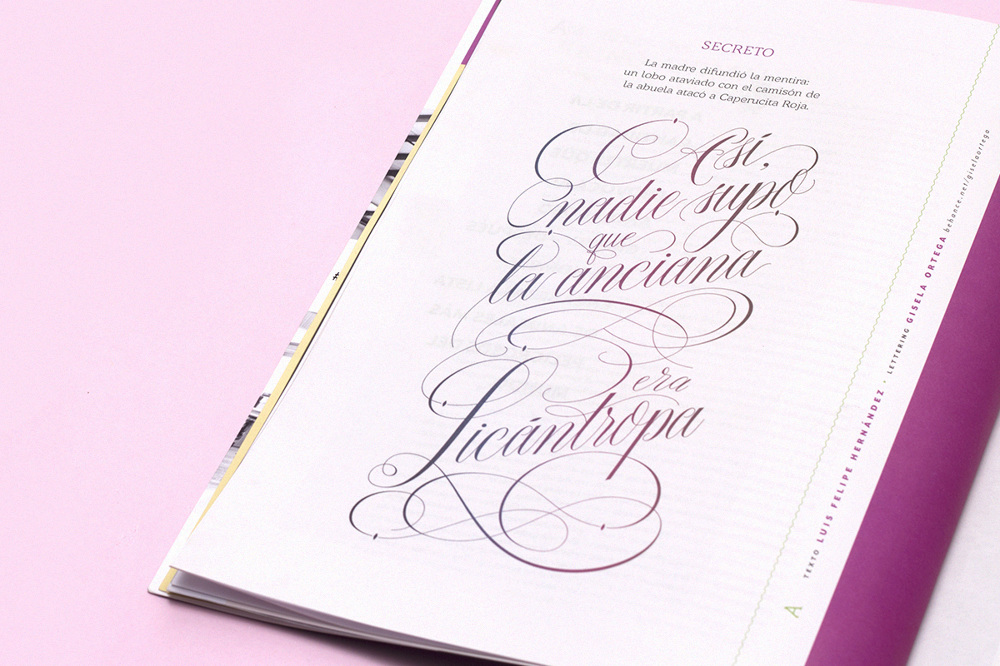 SECRETO
La madre difundió la mentira:
un lobo ataviado con el camisón de
la abuela atacó a Caperucita Roja.
Así,
nadie supo
que
la anciana
era
Licántropa
A TEXTO LUIS FELIPE HERNÁNDEZ • LETTERING GISELA ORTEGA behance.net/giselaortega